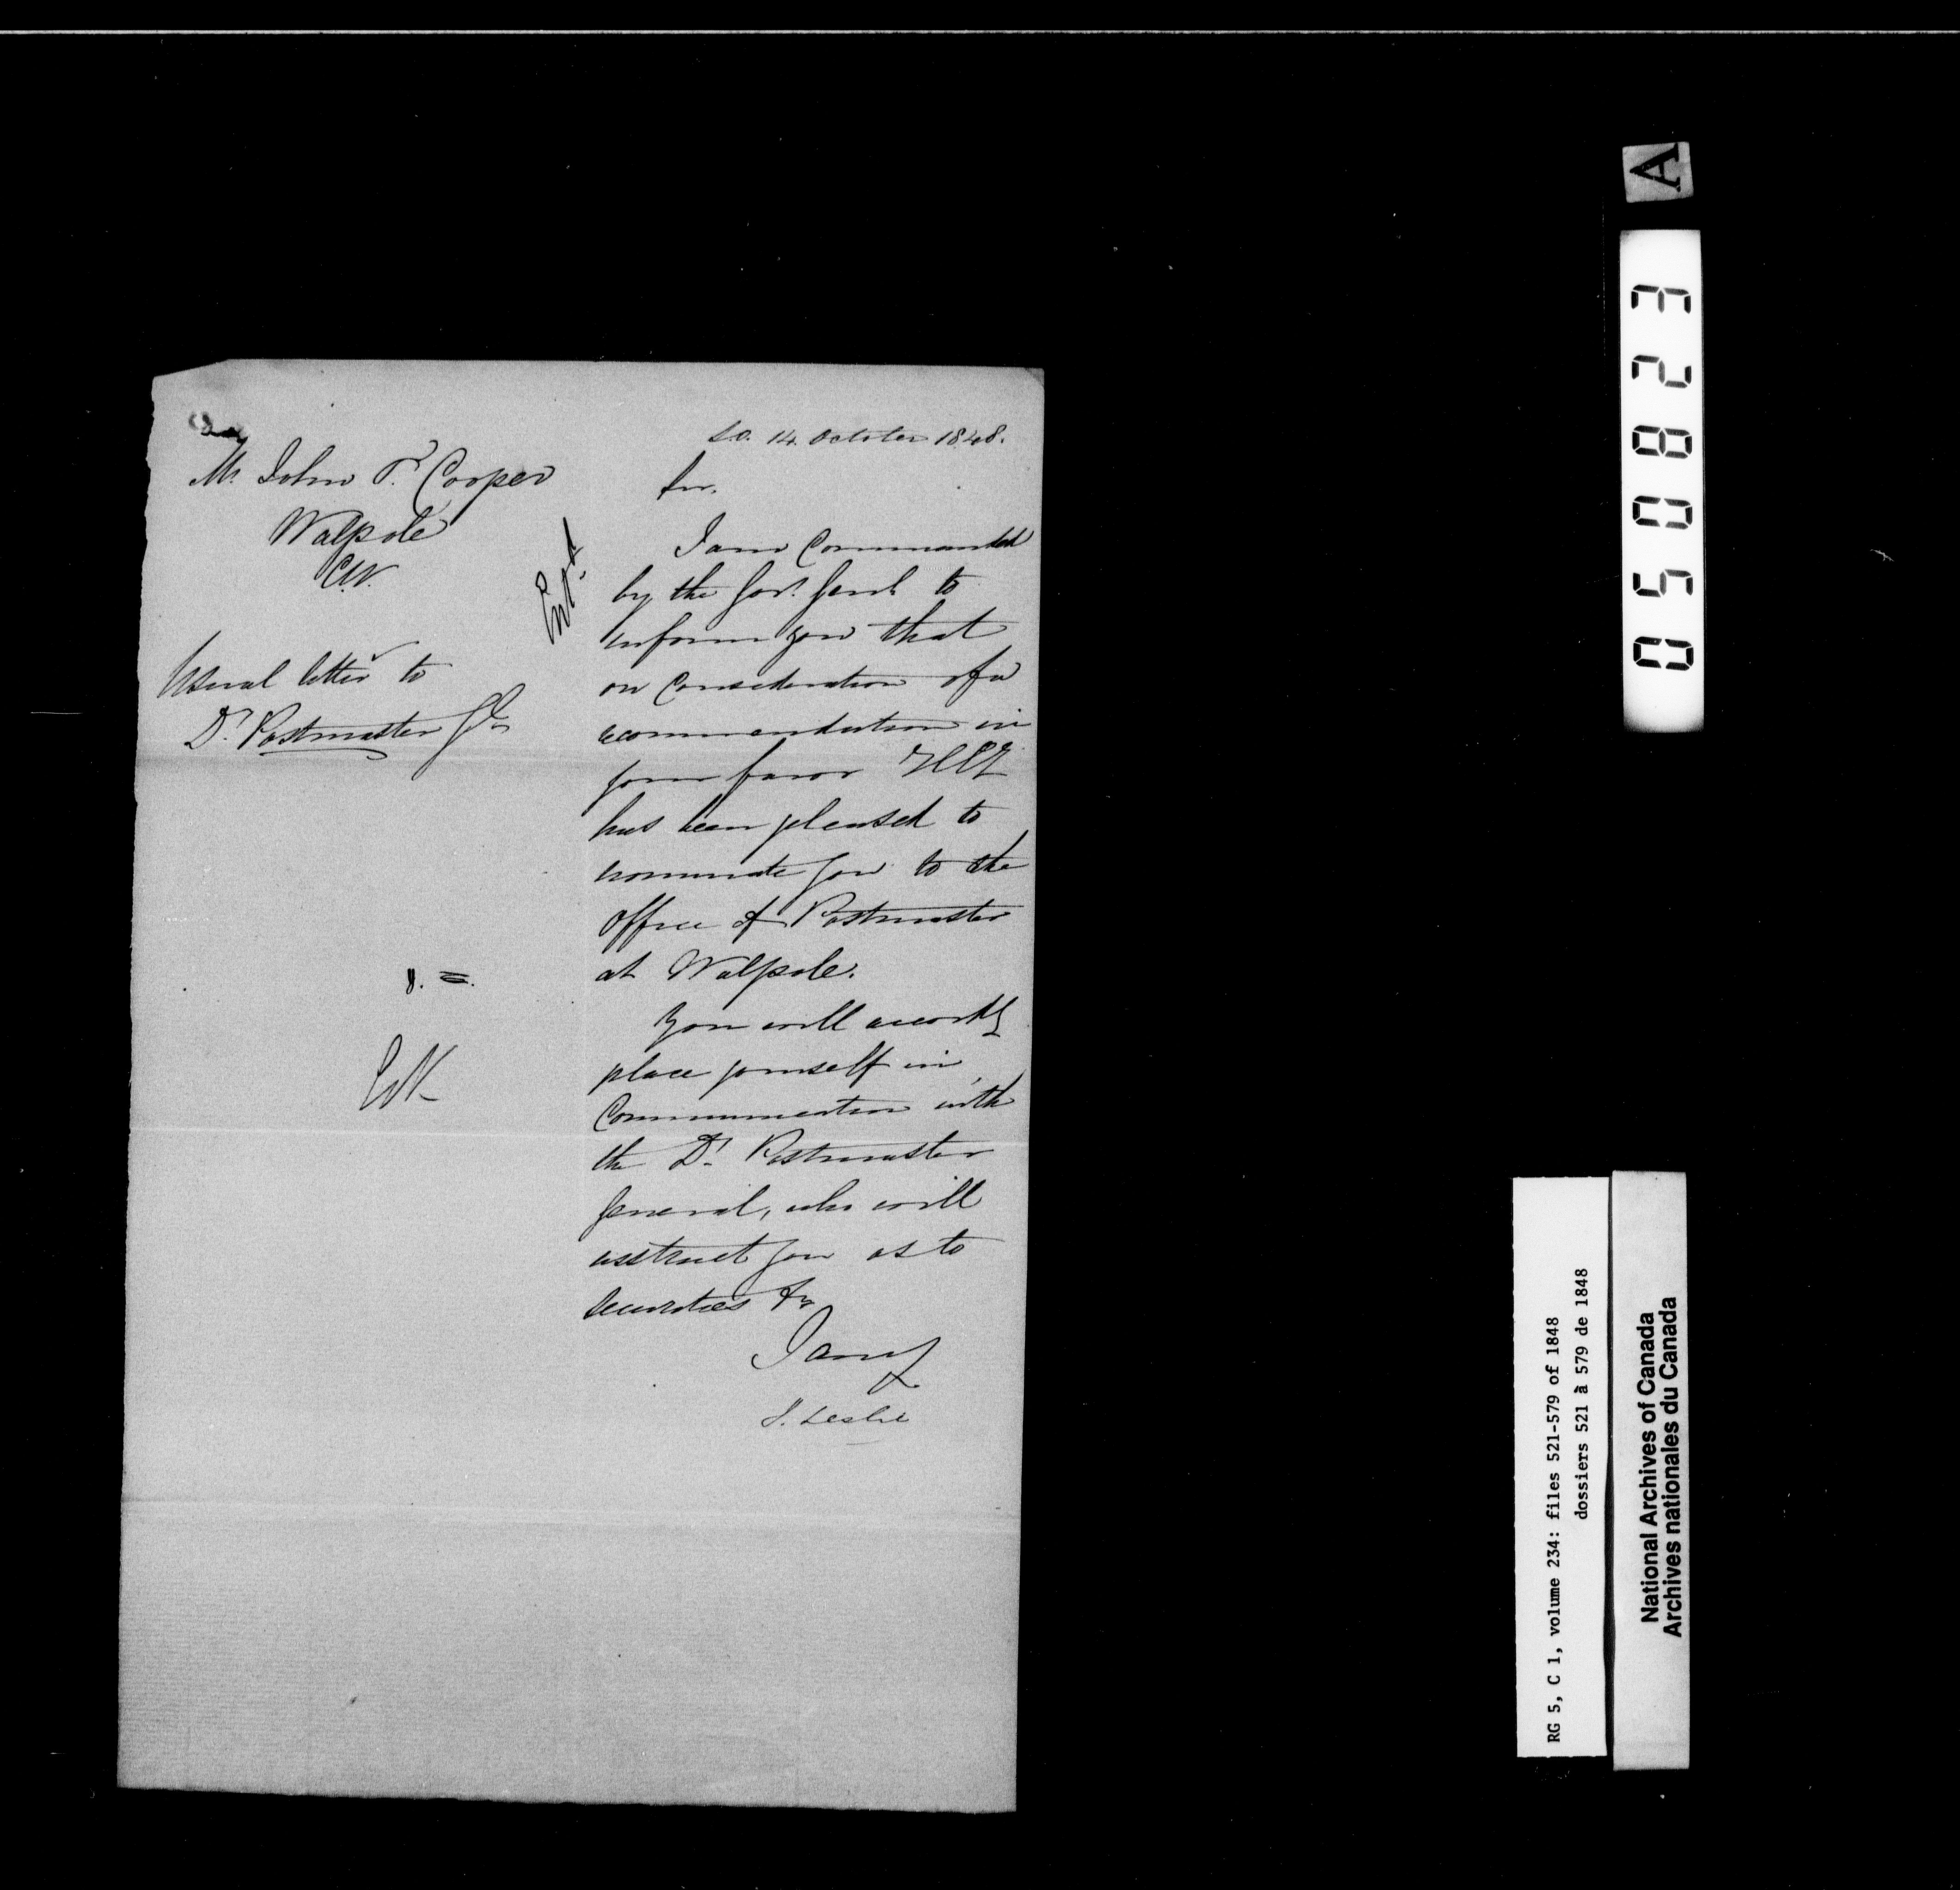 S.O. 14. October 1848.
Mr. John T. Cooper
Walpole
C.W.
Usual letter to
Dy. Postmaster Gl.
Entd.
Sir.
I am Commanded
by the Govr. Genl. to
inform you that
on Consideration of a
recommendation in
your favor H E
has been pleased to
nominate you to the
office of Postmaster
at Walpole.
You will accordly
place yourself in
Communication with
the Dy. Postmaster
General, who will
instruct you as to
securities &c
I am &
J. Leslie
A
050823
RG 5, C 1, volume 234: files 521-579 of 1848
dossiers 521 à 579 de 1848
National Archives of Canada
Archives nationales du Canada